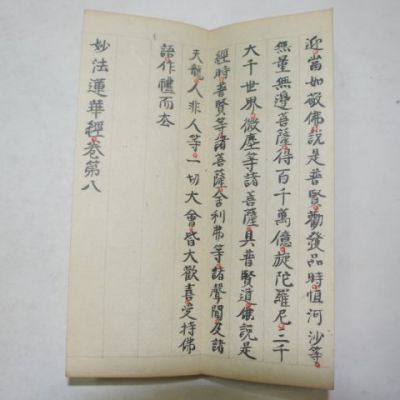 迎當如敬佛說是普賢勸發品時恒河沙等
無量無邊菩薩得百千萬億旋陀羅尼三千
大千世界微塵等諸菩薩具普賢道佛說是
經時普賢等諸菩薩舍利弗等諸聲聞及諸
天龍人非人等一切大會皆大歡喜受持佛
語作禮而去
妙法蓮華經卷第八